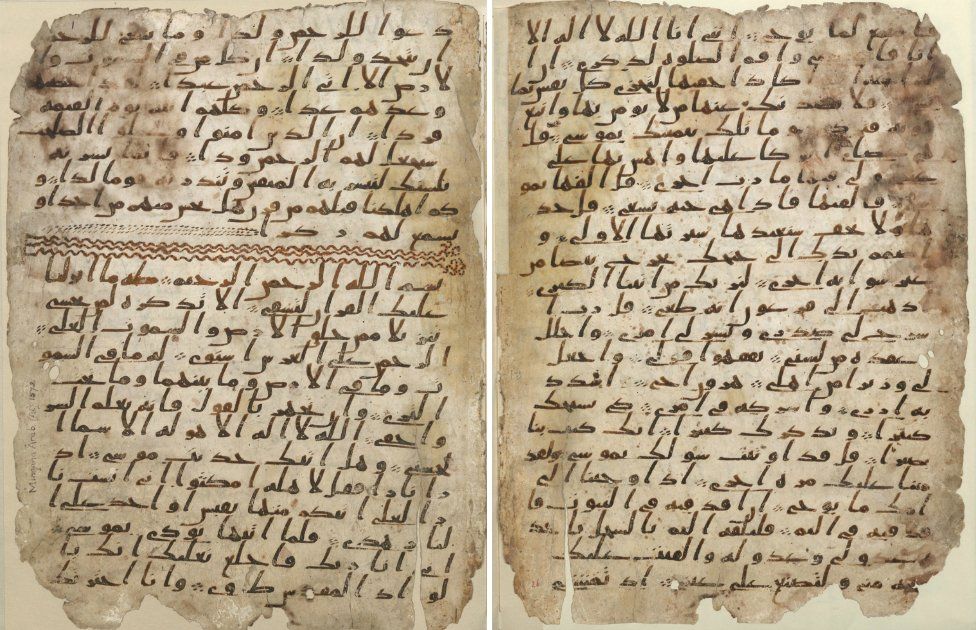 دعوا للرحمن ولدا وما ينبغي للرحمن
ان يتخذ ولدا ان كل من في السموت وا
لارض الا اتي الرحمن عبدا لقد
وعدهم عدا وكلهم اتيه يوم القيمه
فردا ان الذين امنوا وعملوا الصلحت
سيجعل لهم الرحمن ودا فانما يسرنه
بلسنك لتبشر به المتقين وتنذر به قوما لدا و
كم اهلكنا قبلهم من قرن هل تحس منهم من احد او
تسمع لهم ركزا
بسم الله الرحمن الرحيم طه ما انزلنا
عليك القران لتشقى الا تذكره لمن يخشى
تنزيلا ممن خلق الارض والسموت العلى
الرحمن على العرش استوى له ما في السمو
ت وما في الارض وما بينهما وما تحت
الثرى وان تجهر بالقول فانه يعلم السر
واخفى الله لا اله الا هو له الاسما ا
لحسنى وهل اتيك حديث موسى اذ
را نارا فقل لاهله امكثوا اني انست نا
را لعلي اتيكم منها بقبس او اجد على ا
لنار هدى فلما اتيها نودي يموسى
اني انا ربك فاخلع نعليك انك با
لواد المقدس طوى وانا اخترتك
فاستمع لما يوحى انني انا الله لا اله الا
انا واقم الصلوه لذكري ا
اكاد اخفيها لتجزى كل نفس بما
فلا يصدنك عنها من لا يومن بها واتبع
هويه فتردى وما تلك بيمينك يموسى قل
هي عصاي اتوكا عليها واهش بها على
ولي فيها مارب اخرى قل القها يمو
سى فالقيها فاذا هي حيه تسعى قل خذ
ها ولا تخف سنعيدها سيرتها الاولى و
اضمم يدك الى جنحك تخرج بيضا من
غير سو ايه اخرى لنريك من ايتنا الكبرى
اذهب الى فرعون انه طغى قل رب ا
شرح لي صدري ويسر لي امري واحلل
عقده من لسني يفقهوا قولي واجعل
لي وزيرا من اهلي هرون اخي اشدد
به ازري واشركه في امري كي نسبحك
كثيرا ونذكرك كثيرا انك كنت بنا
بصيرا قل قد اوتيت سولك يموسى ولقد
مننا عليك مره اخرى اذ اوحينا الى
امك ما يوحى ان اقذفيه في التبوت فا
قذفيه في اليم فليلقه اليم بالسحل ياخذه
عدو لي وعدو له والقيت عليك
محبه مني ولتصنع على عيني اذ تمشي